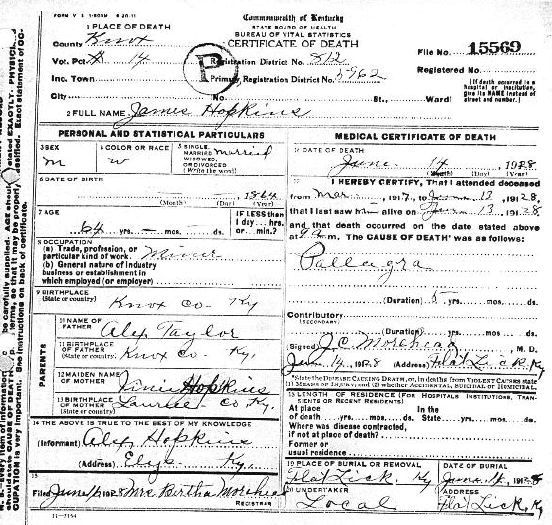 FORM V. S. 1-
Commonwealth of Kentucky
STATE BOARD OF HEALTH
BUREAU OF VITAL STATISTICS
CERTIFICATE OF DEATH
1 PLACE OF DEATH
County Knox
File No. 15569
Vot. Pct # 14 Registration District No. 812
Registered No.
P
Inc. Town Primary Registration District No. 5962
(If death occurred in a
hospital or institution,
give its NAME instead of
street and number.)
City No. St., Ward
2 FULL NAME James Hopkins
PERSONAL AND STATISTICAL PARTICULARS
3 SEX m
4 COLOR OR RACE w
5 SINGLE, MARRIED WIDOWED, OR DIVORCED (Write the word) Married
6 DATE OF BIRTH 1864
(Month) (Day) (Year)
7 AGE
64 yrs. — mos. — ds.
IF LESS than
1 day... hrs.
or... min.?
8 OCCUPATION
(a) Trade, profession, or
particular kind of work Miner
(b) General nature of industry
business or establishment in
which employed (or employer)
9 BIRTHPLACE
(State or country) Knox Co Ky
PARENTS
10 NAME OF
FATHER Alex Taylor
11 BIRTHPLACE
OF FATHER
(State or country) Knox Co. Ky.
12 MAIDEN NAME
OF MOTHER Hopkins
13 BIRTHPLACE
OF MOTHER
(State or country) Co Ky.
14 THE ABOVE IS TRUE TO THE BEST OF MY KNOWLEDGE
(Informant) Alex Hopkins
(Address) Elys Ky.
15
Filed June 1928 Mrs Bertha Morehead
REGISTRAR
11-3154
MEDICAL CERTIFICATE OF DEATH
16 DATE OF DEATH
June 14 1928
(Month) (Day) (Year)
17 I HEREBY CERTIFY, That I attended deceased
from Mar 1917, to June 13 1928,
that I last saw him alive on June 13 1928
and that death occurred on the date stated above
at m. The CAUSE OF DEATH* was as follows:
Pallagra
(Duration) 5 yrs. mos. ds.
Contributory
(SECONDARY)
(Duration) yrs. mos. ds.
Signed J.C. Morehead, M. D.
Jun 14, 1928 (Address) Flat Lick Ky
*State the DISEASE CAUSING DEATH, or, in deaths from VIOLENT CAUSES state
(1) MEANS OF INJURY; and (2) whether ACCIDENTAL, SUICIDAL or HOMICIDAL
18 LENGTH OF RESIDENCE (FOR HOSPITALS INSTITUTIONS, TRANSIENTS OR RECENT RESIDENTS)
At place In the
of death yrs. mos. ds. State yrs. mos. ds.
Where was disease contracted,
if not at place of death?
Former or
usual residence
19 PLACE OF BURIAL OR REMOVAL Flat Lick Ky
DATE OF BURIAL June 14, 1928
20 UNDERTAKER Local
ADDRESS Flat Lick, Ky